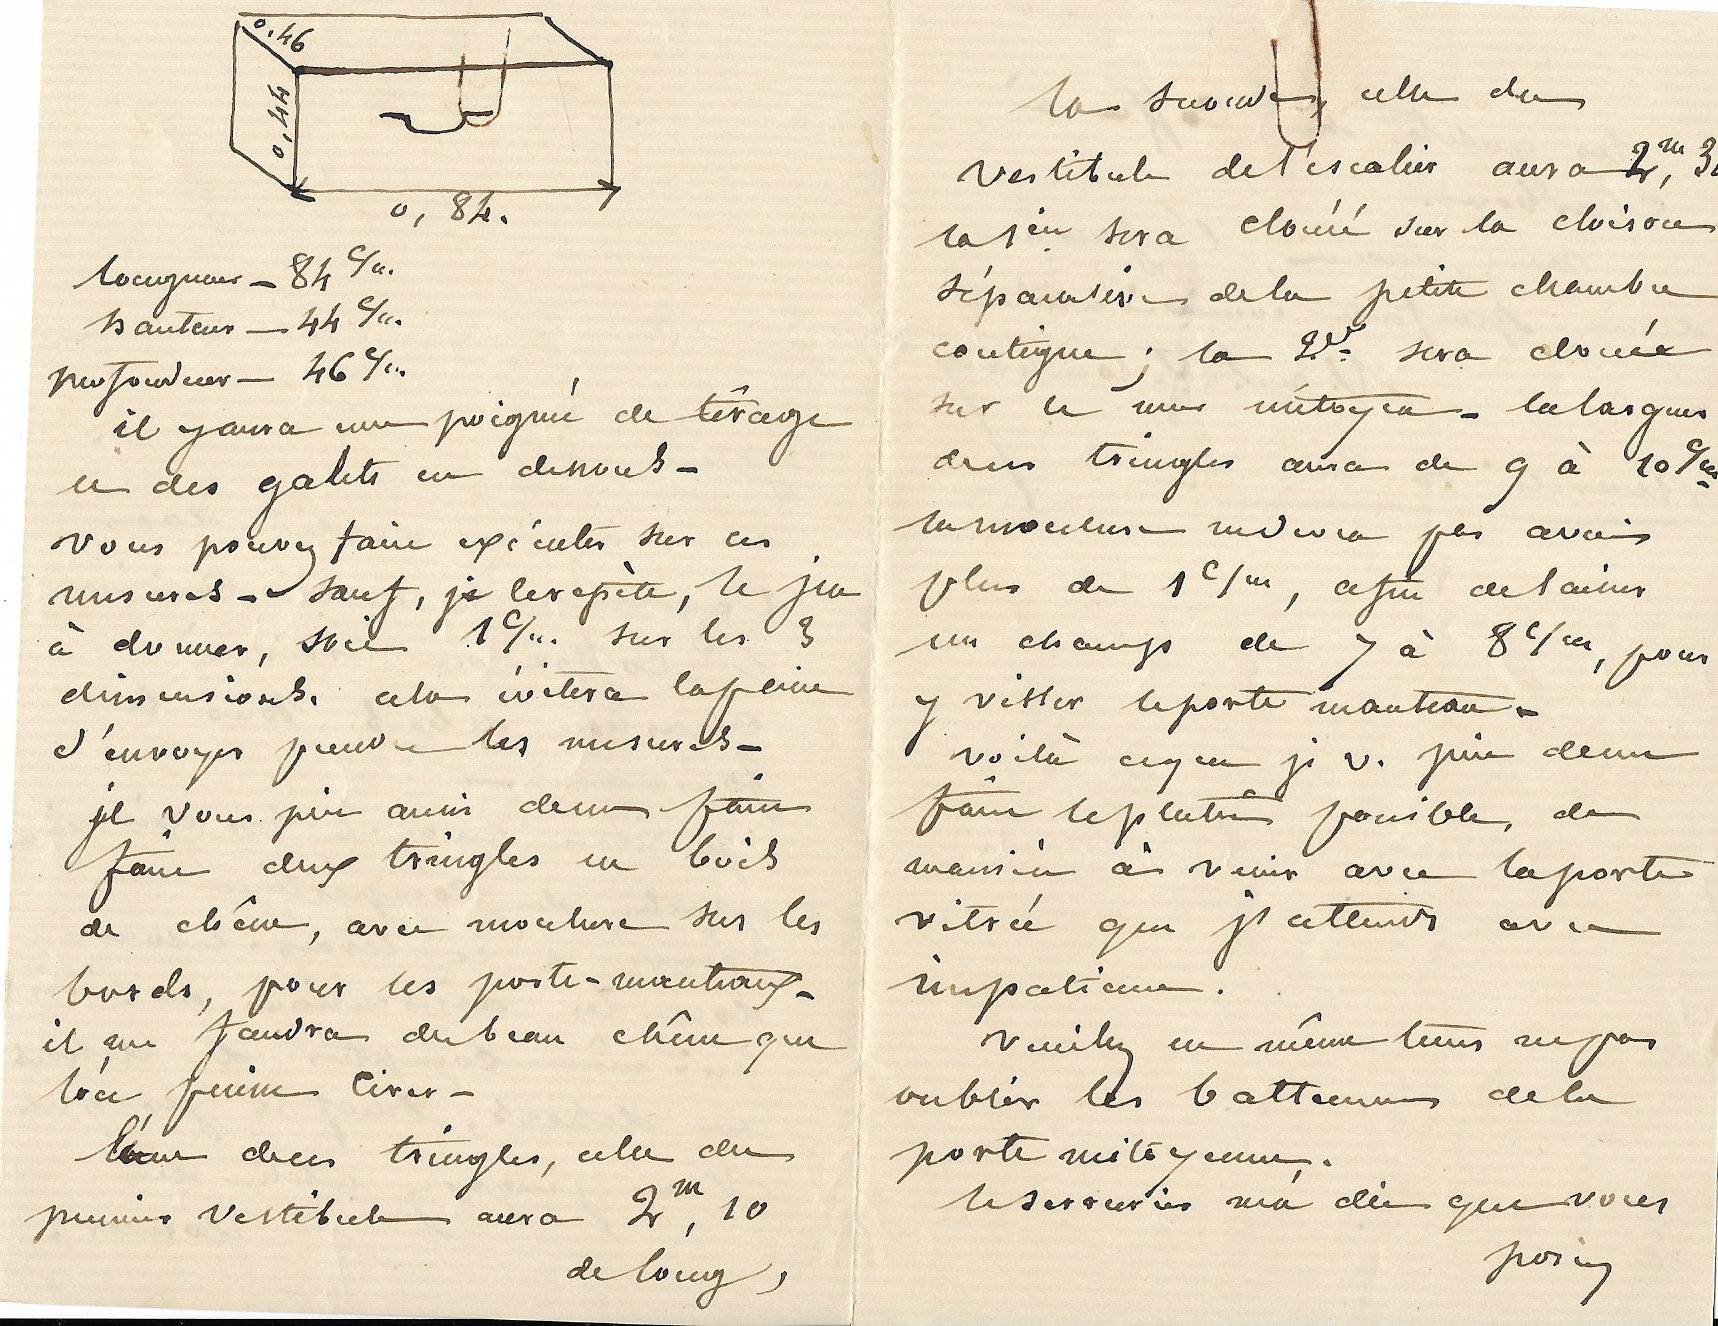 0,46
0,44
0,84.
longueur — 84 c/m.
hauteur — 44 c/m.
profondeur — 46 c/m
il y aura une poignée de tirage
et des galets en dessous —
vous pouvez faire exécuter sur ces
mesures — sauf, je le répète, le jeu
à donner, soit 1 c/m. sur les 3
dimensions. cela évitera la peine
d'envoyer prendre les mesures —
je vous prie aussi de me faire
faire deux tringles en bois
de chêne, avec moulure sur les
bords, pour les porte-manteaux —
il me faudra du beau chêne que
l'on puisse cirer —
L'une de ces tringles, celle du
premier vestibule aura 2m,10
de long,
la seconde, celle du
vestibule de l'escalier aura 2m,
la 1ère sera clouée sur la cloison
séparative de la petite chambre
contigue ; la 2de sera clouée
sur le mur mitoyen — la largeur
des tringles aura de 9 à 10 c/m
la moulure ne devra pas avoir
plus de 1 c/m, afin de laisser
un champs de 7 à 8 c/m, pour
y visser le porte manteau —
voilà ce que je v. prie de me
faire le plutôt possible, de
manière à venir avec la porte
vitrée que j'attends avec
impatience.
Veuillez en même tems ne pas
oublier les battements de la
porte mitoyenne.
le serrurier m'a dit que vous
posiez